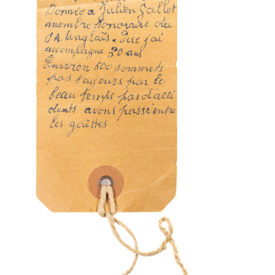 Donnée a Julien Gallet
membre honoraire du
CA Anglais. Que j'ai
acompligne 30 ans
Environ 600 sommets
pas toujours par le
beau temps pas d'acci
dents avons passé entre
les gouttes